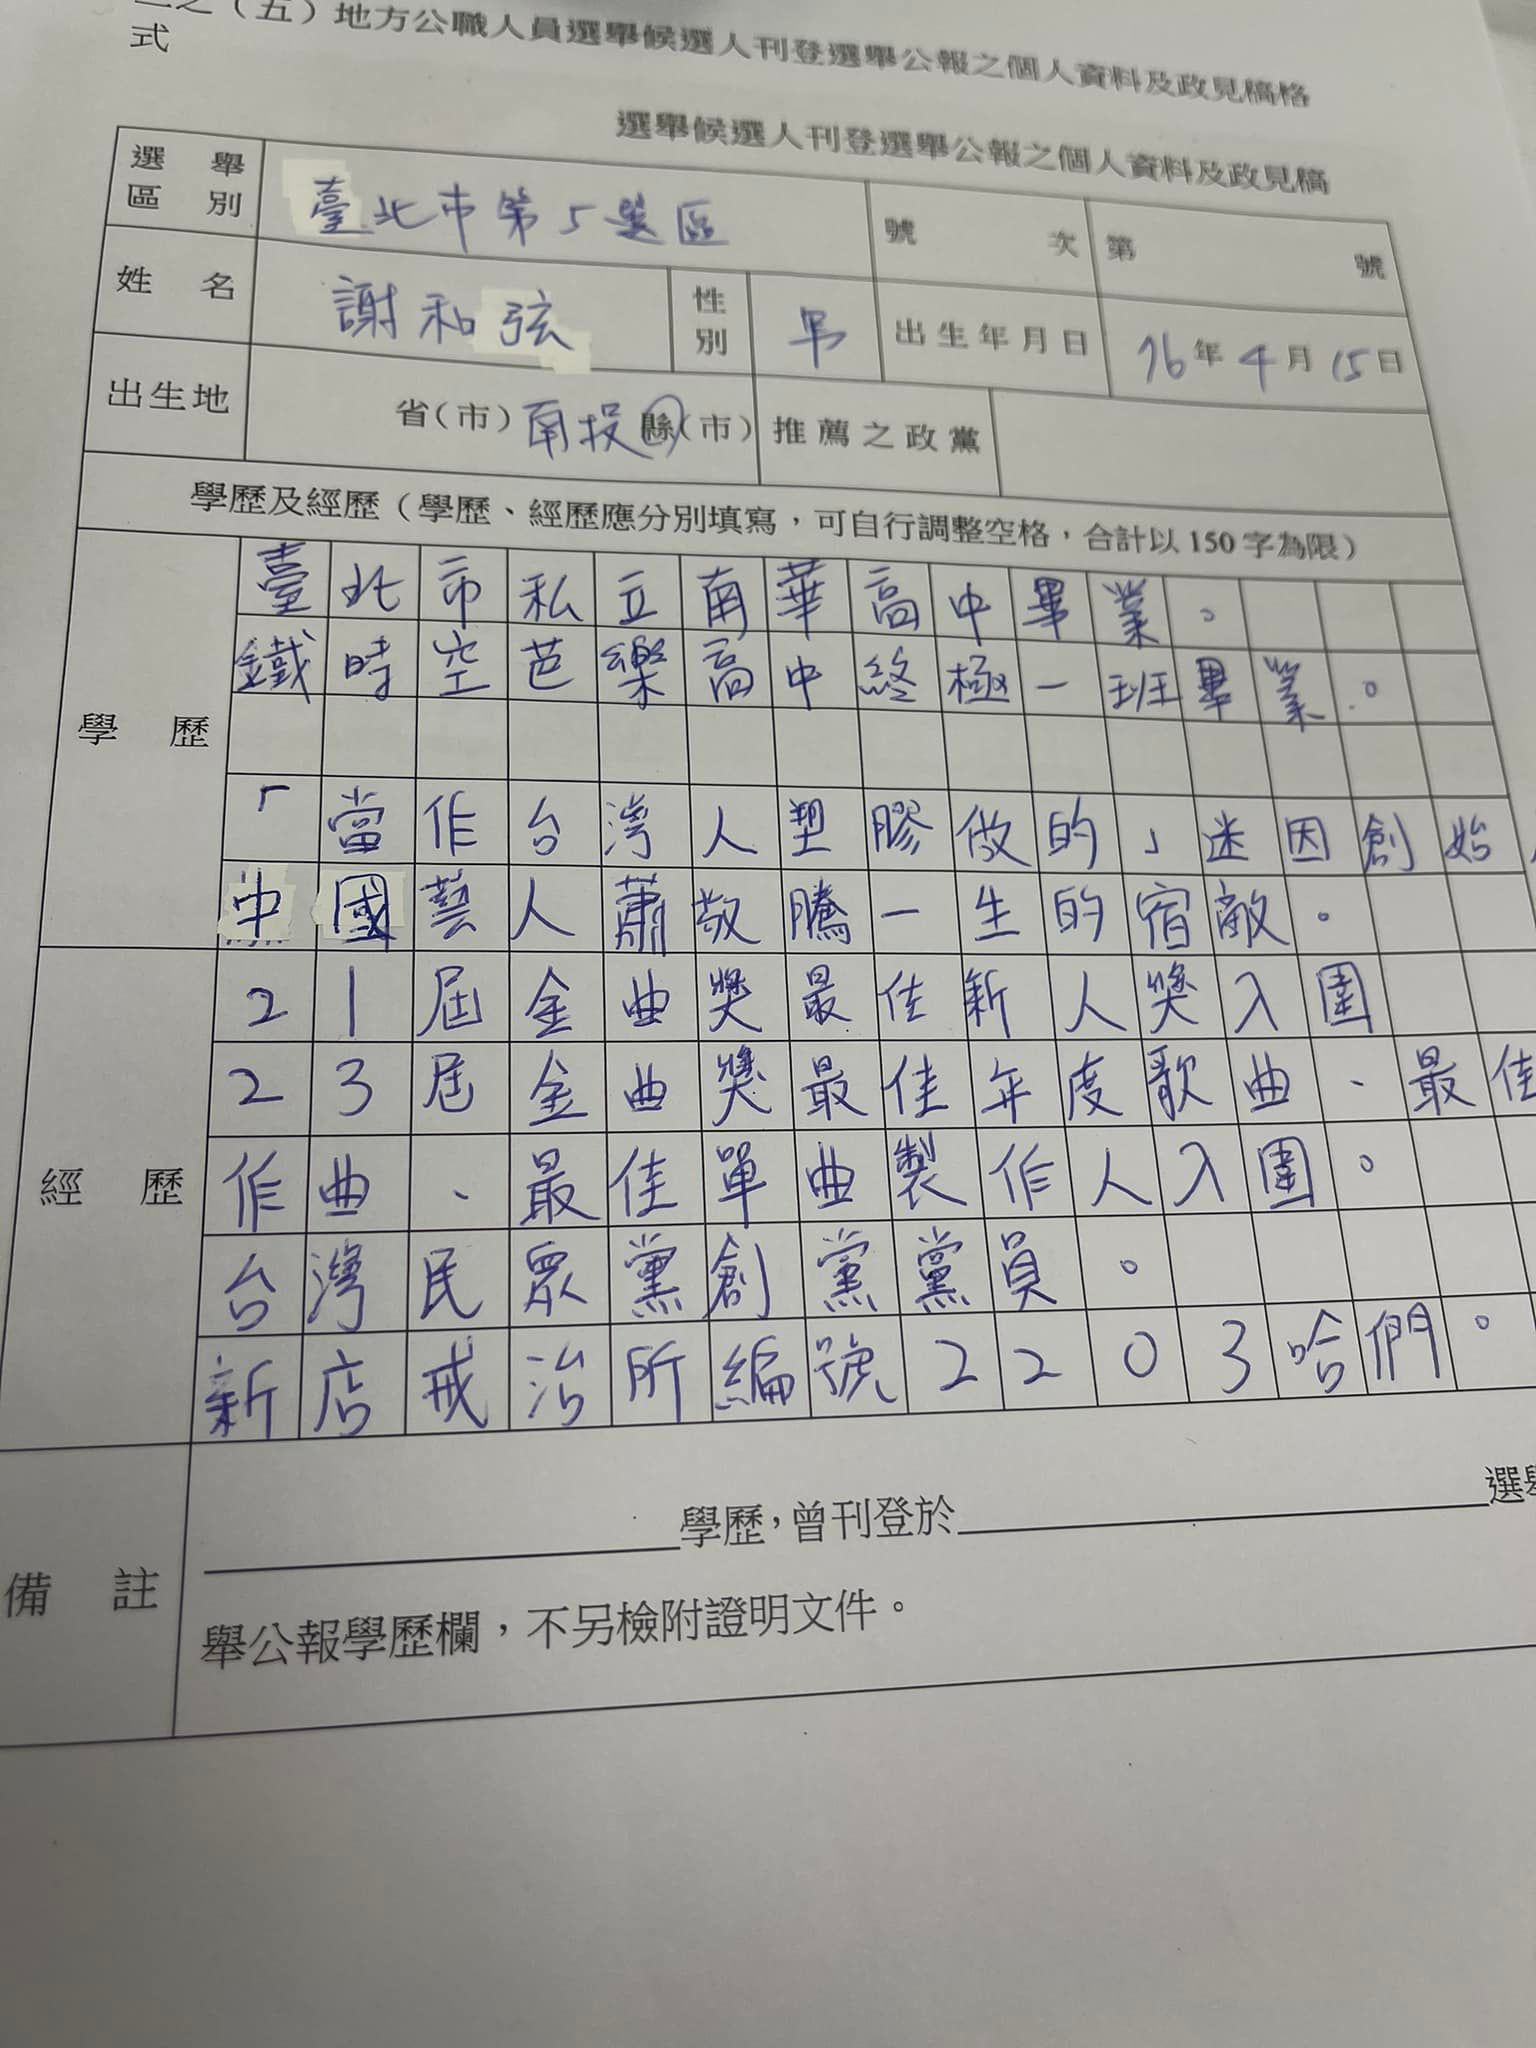 之（五）地方公職人員選舉候選人刊登選舉公報之個人資料及政見稿格
式
選舉候選人刊登選舉公報之個人資料及政見稿
選舉區別 臺北市第5選區 號次 第 號
姓名 謝和弦 性別 出生年月日 76年4月15日
出生地 省（市）南投縣（市） 推薦之政黨
學歷及經歷（學歷、經歷應分別填寫，可自行調整空格，合計以150字為限）
學歷
臺北市私立南華高中畢業。
鐵時空芭樂高中終極一班畢業。
「當作台灣人塑膠做的」迷因創始
中國藝人蕭敬騰一生的宿敵。
經歷
21屆金曲獎最佳新人獎入圍
23屆金曲獎最佳年度歌曲、最佳
作曲、最佳單曲製作人入圍。
台灣民眾黨創黨黨員。
新店戒治所編號2203哈們。
備註
學歷，曾刊登於 選舉
舉公報學歷欄，不另檢附證明文件。